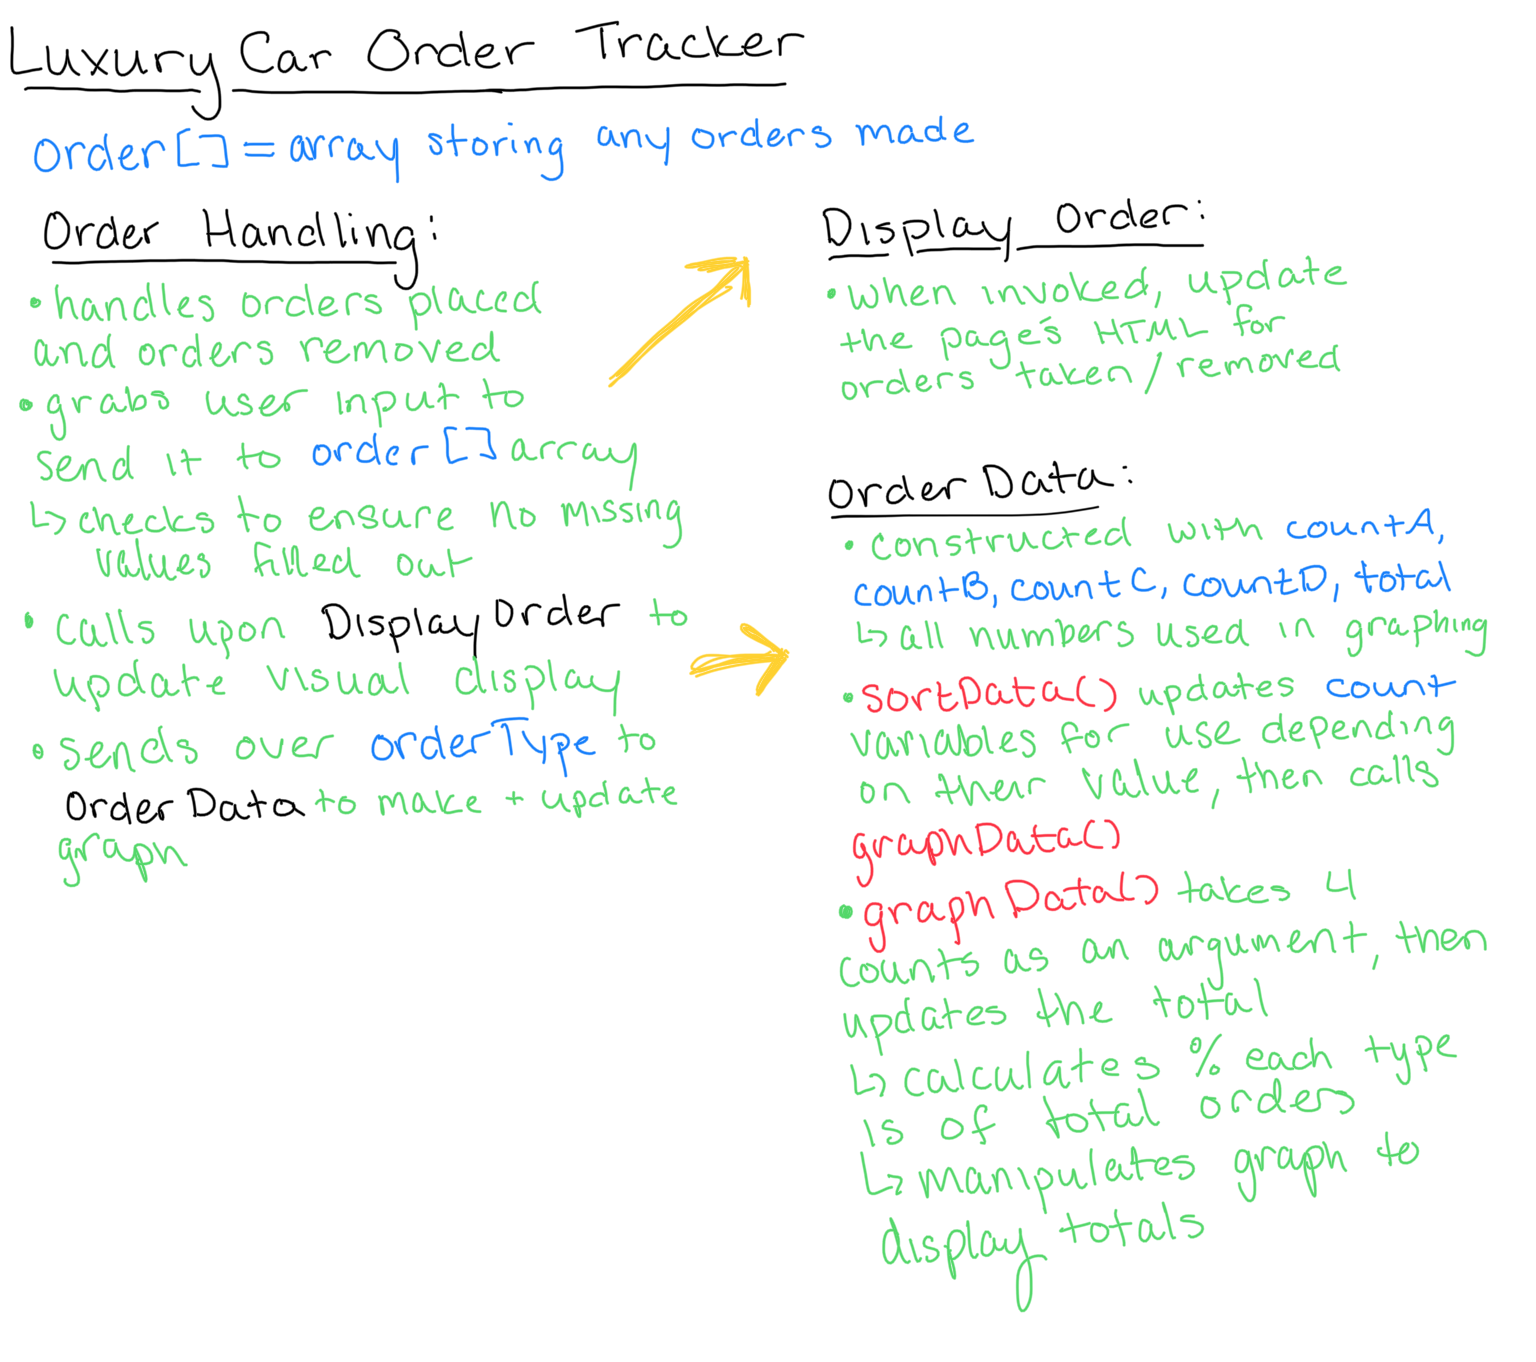 Luxury Car Order Tracker
order[] = array storing any orders made
Order Handling:
• handles orders placed
and orders removed
• grabs user input to
send it to order[] array
↳ checks to ensure no missing
values filled out
• calls upon DisplayOrder to
update visual display
• sends over orderType to
OrderData to make + update
graph
Display Order:
• when invoked, update
the page's HTML for
orders taken/removed
Order Data:
• constructed with countA,
countB, countC, countD, total
↳ all numbers used in graphing
• sortData() updates count
variables for use depending
on their value, then calls
graphData()
• graphData() takes 4
counts as an argument, then
updates the total
↳ calculates % each type
is of total orders
↳ manipulates graph to
display totals